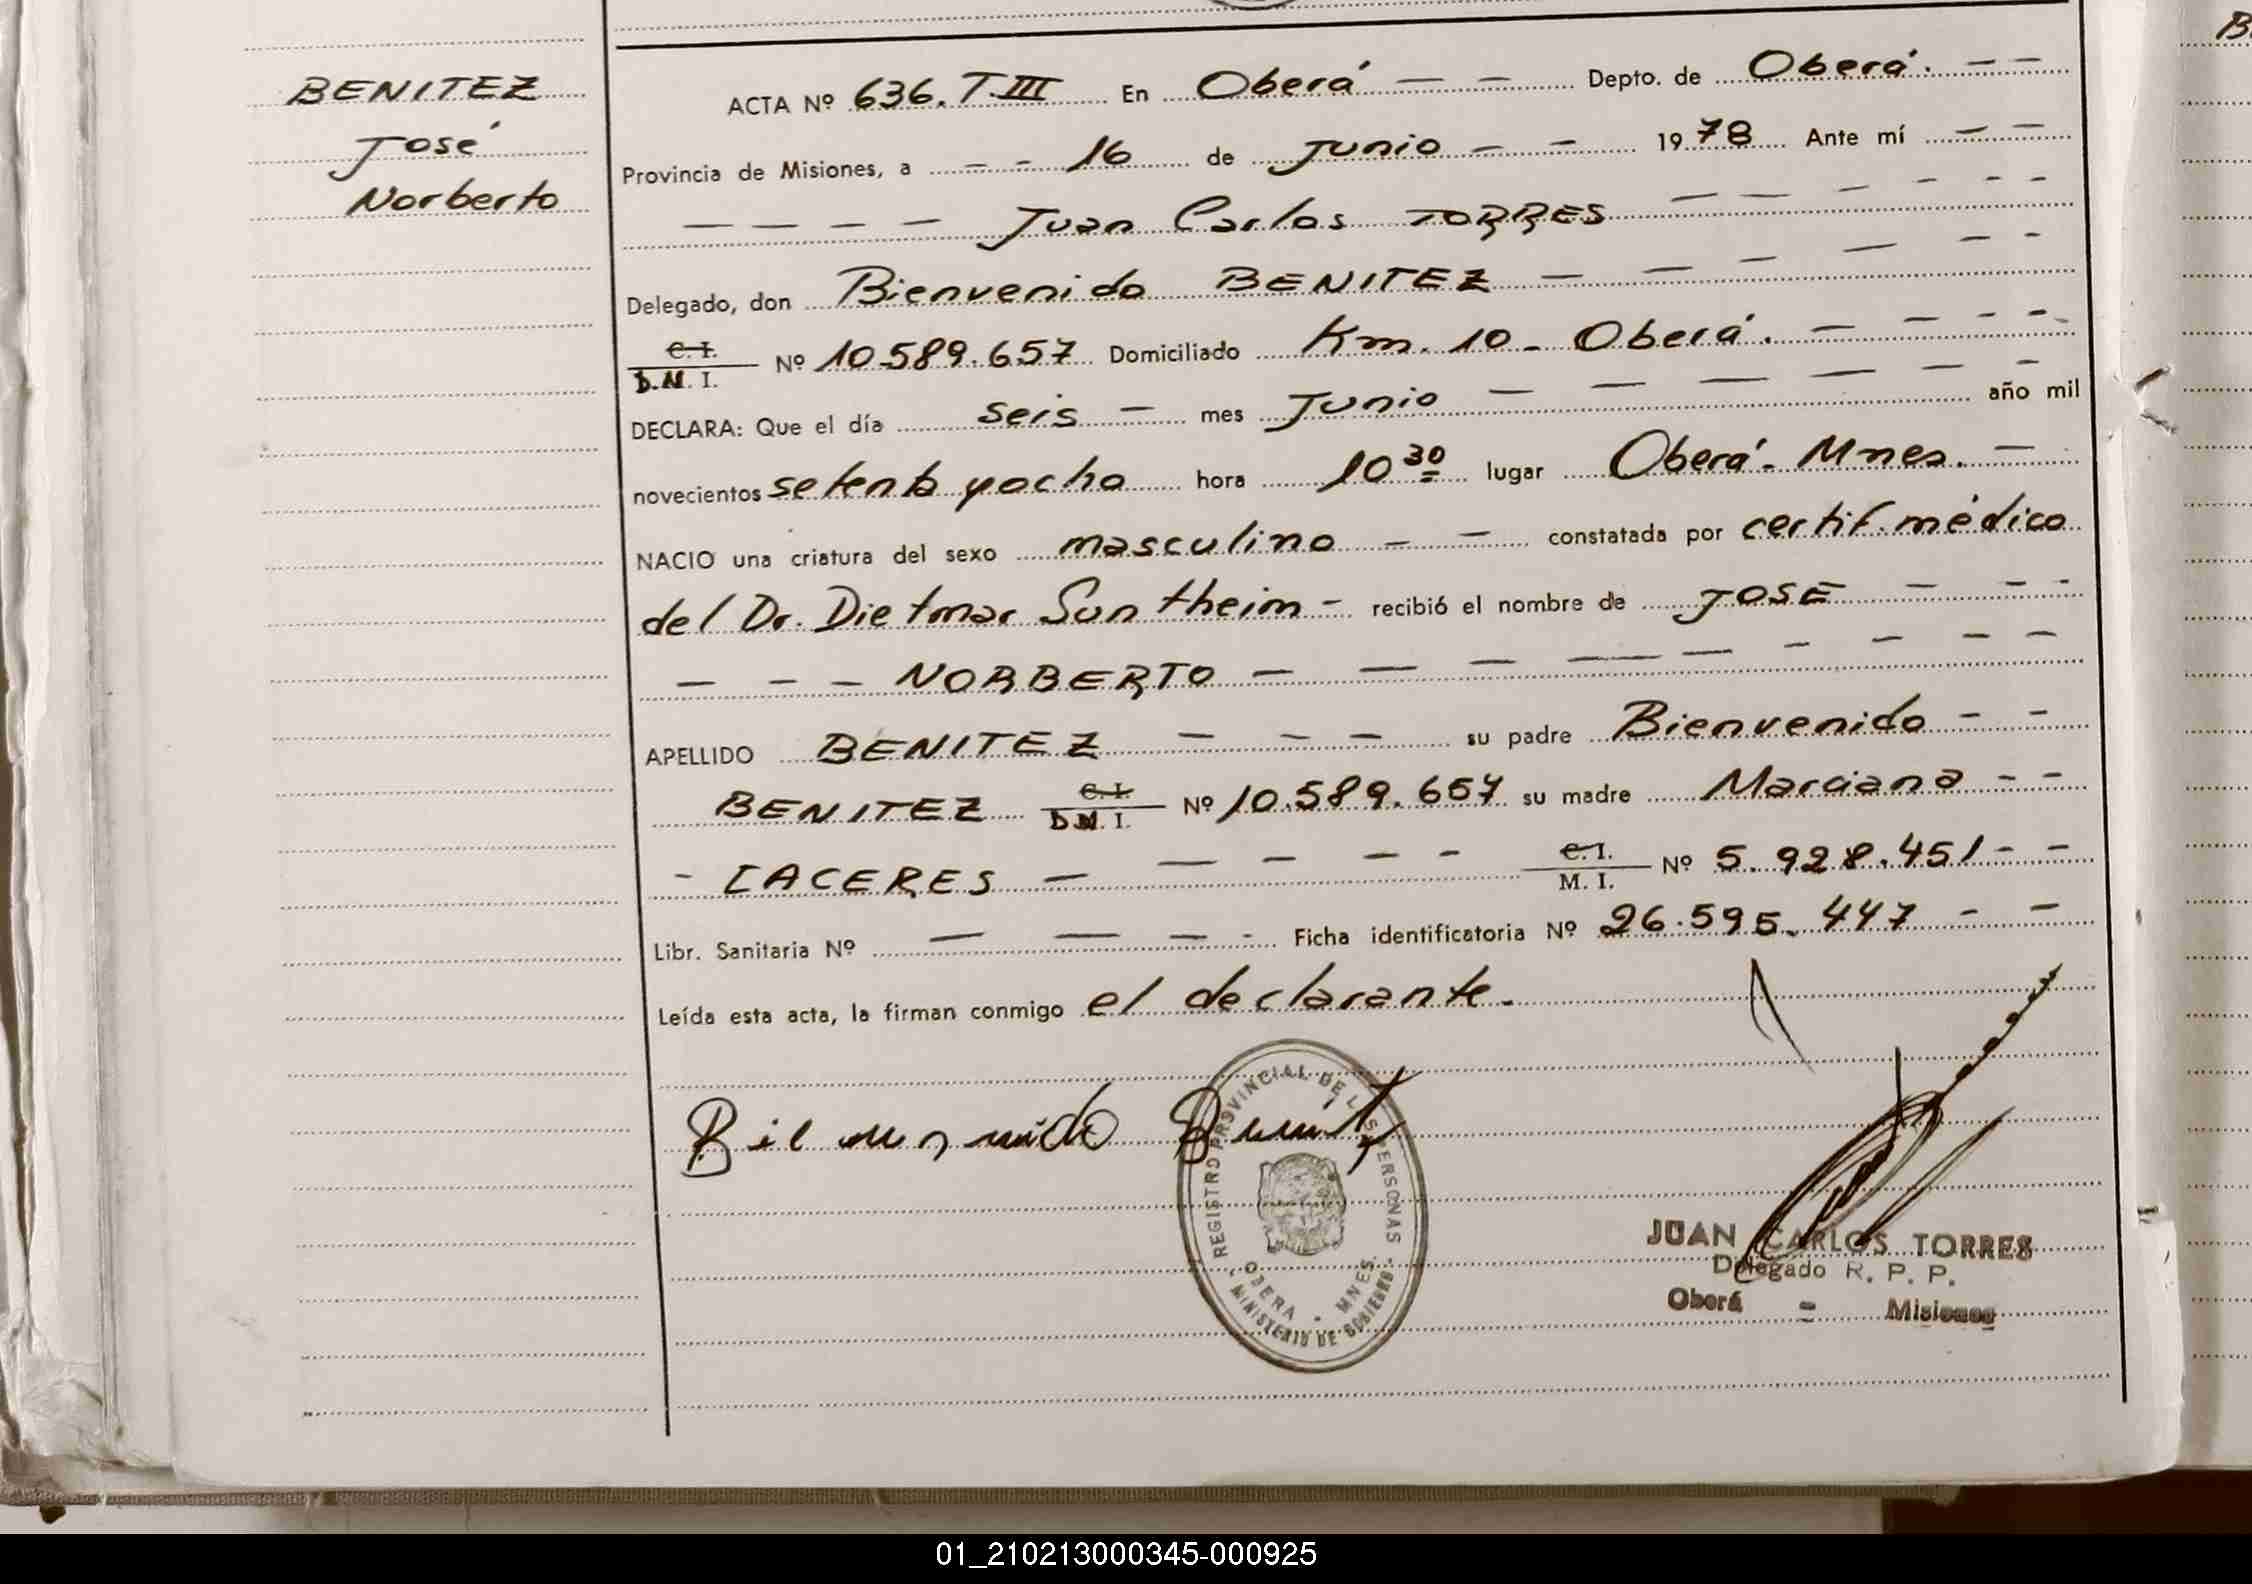 B
BENITEZ
José
Norberto
ACTA Nº 636. T. III En Oberá — — Depto. de Oberá. — —
Provincia de Misiones, a — — 16 de Junio — — 1978 Ante mí — —
— — — — Juan Carlos TORRES — — — — — —
Delegado, don Bienvenido BENITEZ — — — — — —
C. I.
D.N. I. Nº 10.589.657 Domiciliado Km. 10 - Oberá. — — — —
DECLARA: Que el día seis — mes Junio — — — — — — año mil
novecientos setenta y ocho hora 10 30 lugar Oberá - Mnes. —
NACIO una criatura del sexo masculino — — constatada por certif. médico
del Dr. Dietmar Suntheim - recibió el nombre de JOSÉ — — -
— — — NORBERTO — — — — — — — — —
APELLIDO BENITEZ — — — su padre Bienvenido — —
BENITEZ C. I.
D.N. I. Nº 10.589.657 su madre Marciana — —
- CACERES — — — — — C. I.
M. I. Nº 5.928.451 — —
Libr. Sanitaria Nº — — — - Ficha identificatoria Nº 26.595.447 — —
Leída esta acta, la firman conmigo el declarante.
REGISTRO PROVINCIAL DE LAS PERSONAS
OBERA - MNES.
MINISTERIO DE GOBIERNO
JUAN CARLOS TORRES
Delegado R. P. P.
Oberá - Misiones
01_210213000345-000925